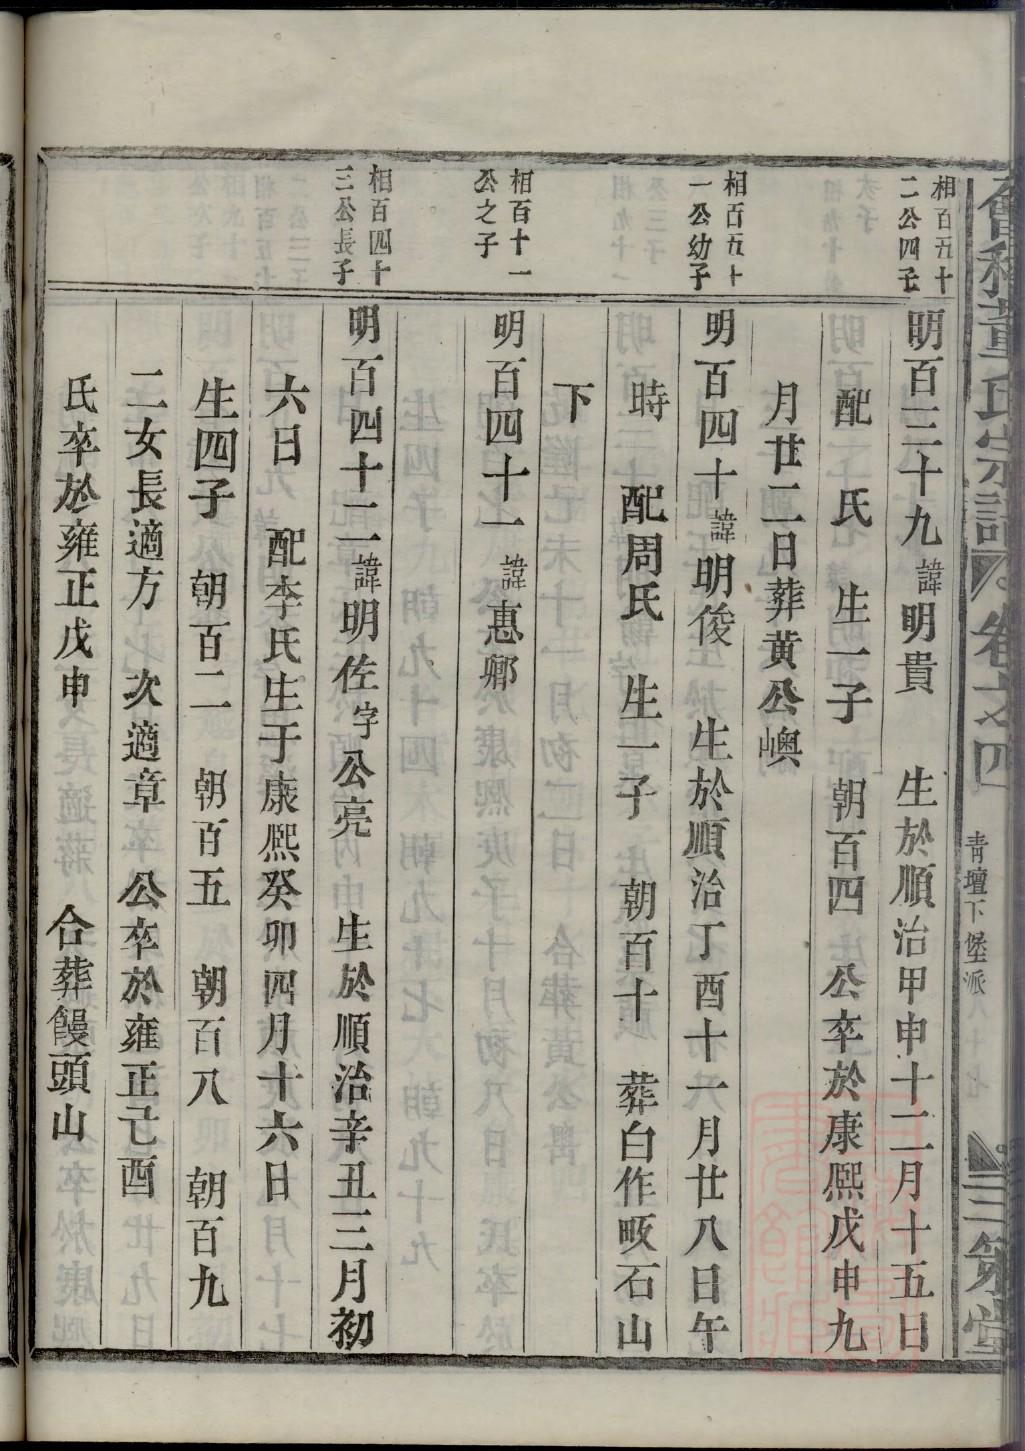 會稽董氏宗譜 卷之四
青壇下堡派
三策堂
相百五十
二公四子
明百三十九 諱明貴 生於順治甲申十二月十五日
配 氏 生一子 朝百四 公卒於康熙戊申九
月廿二日葬黃公嶼
相百五十
一公幼子
明百四十 諱明俊 生於順治丁酉十一月廿八日午
時 配周氏 生一子 朝百十 葬白作畈石山
下
相百十一
公之子
明百四十一 諱惠卿
相百四十
三公長子
明百四十二 諱明佐 字公亮 生於順治辛丑三月初
六日 配李氏生于康熙癸卯四月十六日
生四子 朝百二 朝百五 朝百八 朝百九
二女長適方 次適章 公卒於雍正己酉
氏卒於雍正戊申 合葬饅頭山